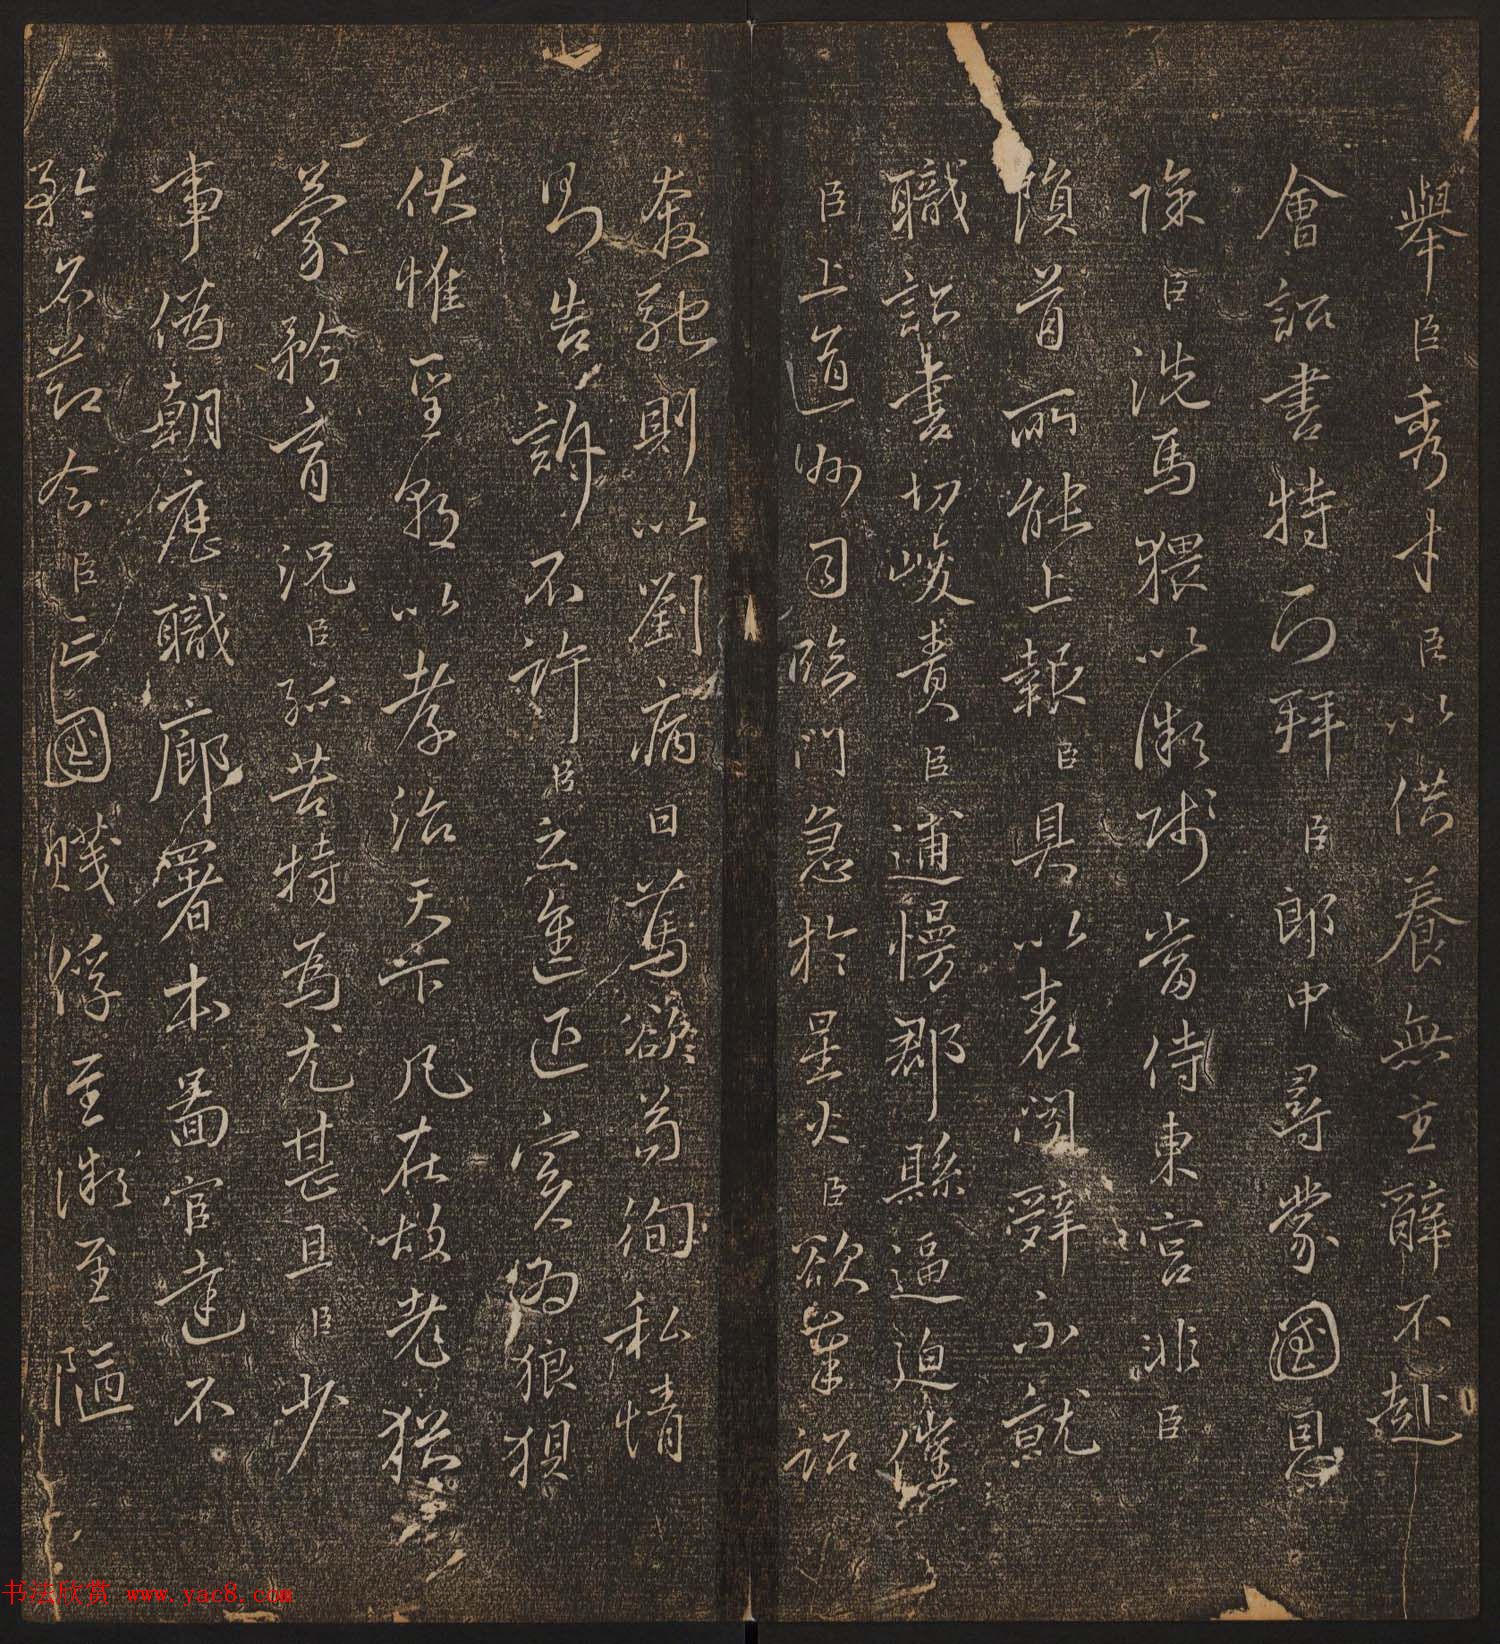 舉臣秀才臣以供養無主辭不赴
會詔書特下拜臣郎中尋蒙國恩
除臣洗馬猥以微賤當侍東宮非臣
隕首所能上報臣具以表聞辭不就
職詔書切峻責臣逋慢郡縣逼迫催
臣上道州司臨門急於星火臣欲奉詔
奔馳則以劉病日篤欲苟徇私情
則告訴不許臣之進退實為狼狽
伏惟聖朝以孝治天下凡在故老猶
蒙矜育況臣孤苦特為尤甚且臣少
事偽朝歷職廊署本圖官達不
矜名節今臣亡國賤俘至微至陋
书法欣赏 www.yac8.com